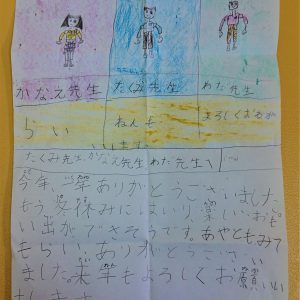 かなえ先生 たくみ先生 わた先生
らい ねんも よろしくおねが
います
たくみ先生、かなえ先生 わた先生へ
今年、一年ありがとうございました。
もう冬休みにはいり、楽しいおも
い出ができそうです。あやともみて
もらい、ありがとうござい
ました。来年もよろしくお願いい
たします